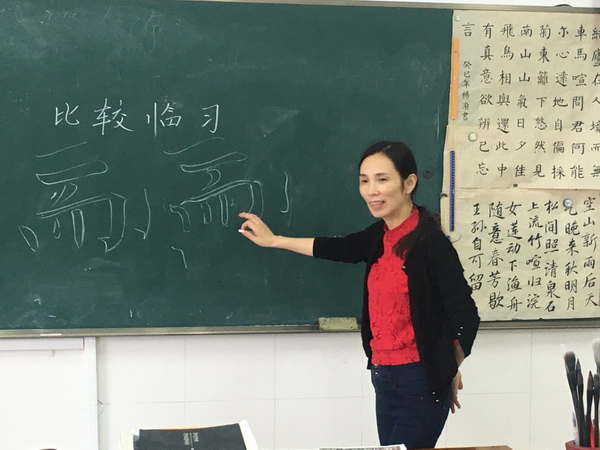 比较临习
而 而
結廬在人境而無
車馬喧問君何能
尔心遠地自偏採
菊東籬下悠然見
南山山氣日夕佳
飛鳥相與還此中
有真意欲辨已忘
言
癸巳年
空山新雨后天
气晚来秋明月
松间照清泉石
上流竹喧归浣
女莲动下渔舟
随意春芳歇
王孙自可留